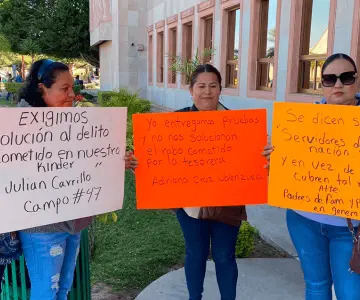 EXIGIMOS
SOLUCIÓN AL delito
Cometido en nuestro
Kinder
Julian Carrillo
Campo #47
Ya entregamos Pruebas
y no nos solucionan
el robo cometido
Por la tesorera
Adriana Cruz Valenzuela
Se dicen se
"Servidores d
nación
Y en vez de
Cubren tal
Atte
Padres de Fam y P
en general